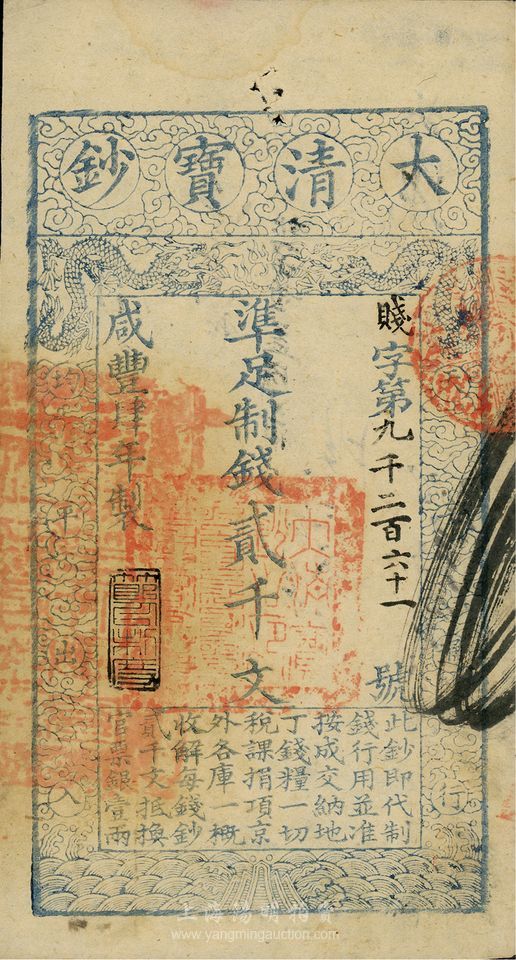 大清寶鈔
賤字第九千二百六十一號
準足制錢貳千文
咸豐肆年製
均平出入
行
此鈔即代制
錢行用並准
按成交納地
丁錢糧一切
稅課捐項京
外各庫一概
收解每錢鈔
貳千文抵換
官票銀壹兩
上海陽明拍賣
www.yangmingauction.com